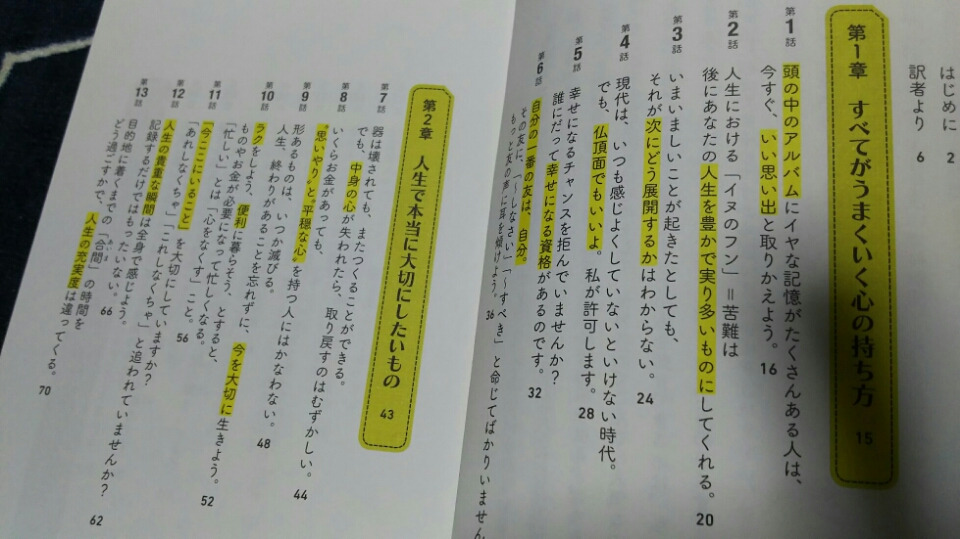 はじめに 2
訳者より 6
第1章 すべてがうまくいく心の持ち方 15
第1話 頭の中のアルバムにイヤな記憶がたくさんある人は、
今すぐ、いい思い出と取りかえよう。 16
第2話 人生における「イヌのフン」=苦難は
後にあなたの人生を豊かで実り多いものにしてくれる。 20
第3話 いまいましいことが起きたとしても、
それが次にどう展開するかはわからない。 24
第4話 現代は、いつも感じよくしていないといけない時代。
でも、仏頂面でもいいよ。私が許可します。 28
第5話 幸せになるチャンスを拒んでいませんか?
誰にだって幸せになる資格があるのです。 32
第6話 自分の一番の友は、自分。
その友に、「〜しなさい」「〜すべき」と命じてばかりいません
もっと友の声に耳を傾けよう。 36
第2章 人生で本当に大切にしたいもの 43
第7話 器は壊されても、またつくることができる。
でも、中身の心が失われたら、取り戻すのはむずかしい。 44
第8話 いくらお金があっても、
"思いやり"と"平穏な心"を持つ人にはかなわない。 48
第9話 形あるものは、いつか滅びる。
人生、終わりがあることを忘れずに、今を大切に生きよう。 52
第10話 ラクをしよう、便利に暮らそう、とすると、
ものやお金が必要になって忙しくなる。 56
第11話 「忙しい」とは「心をなくす」こと。
「今ここにいること」を大切にしていますか?
第12話 「あれしなくちゃ」「これしなくちゃ」と追われていませんか? 62
人生の貴重な瞬間は全身で感じよう。
記録するだけではもったいない。 66
第13話 目的地に着くまでの「合間」の時間を
どう過ごすかで、人生の充実度は違ってくる。 70